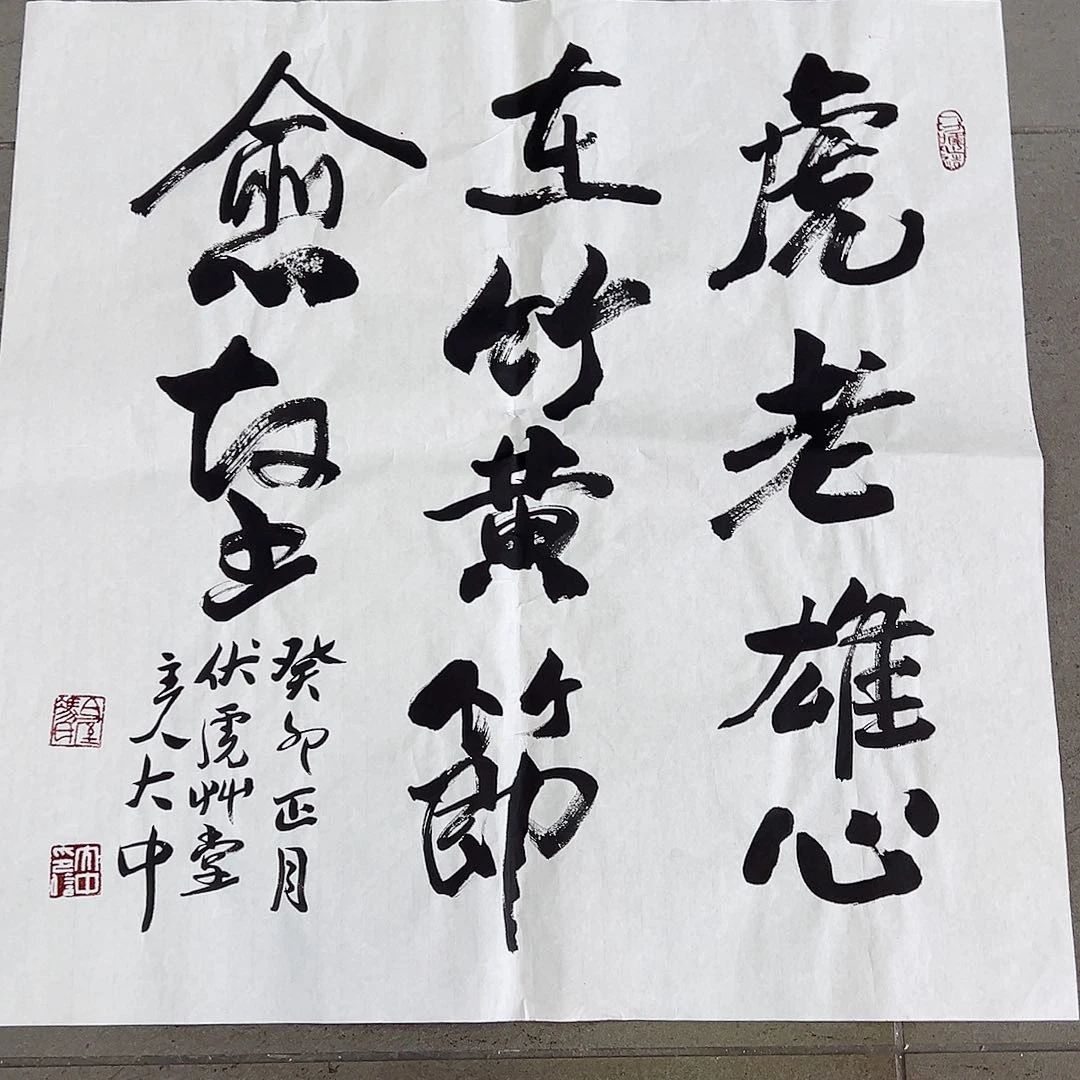 虎老雄心
在竹黄節
愈堅
癸卯正月
伏虎艸堂
主人大中